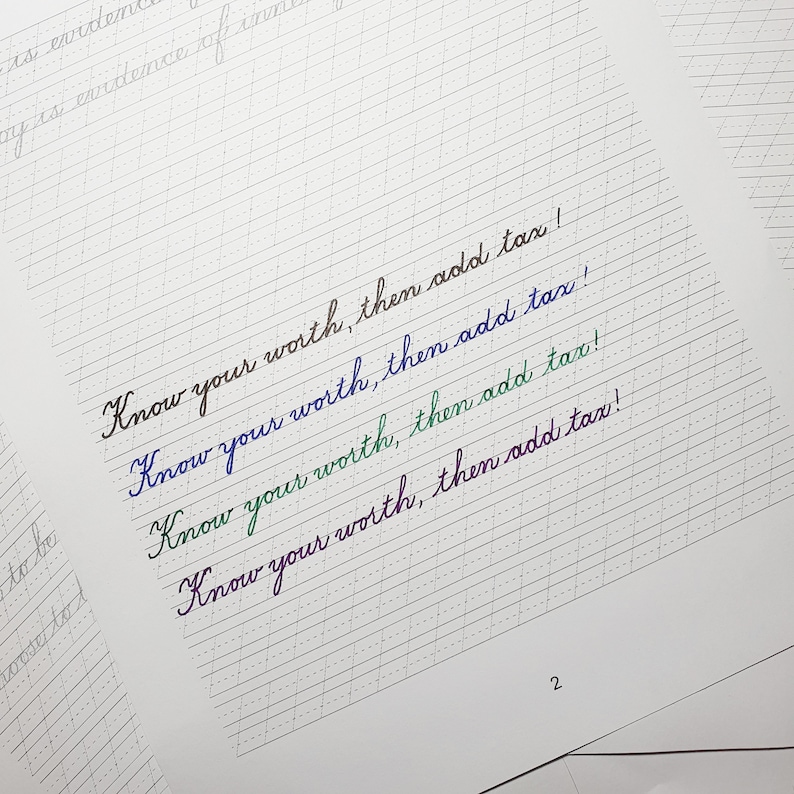 is evidence
oy is evidence of inner
Know your worth, then add tax!
Know your worth, then add tax!
Know your worth, then add tax!
Know your worth, then add tax!
to be
hoose to t
2